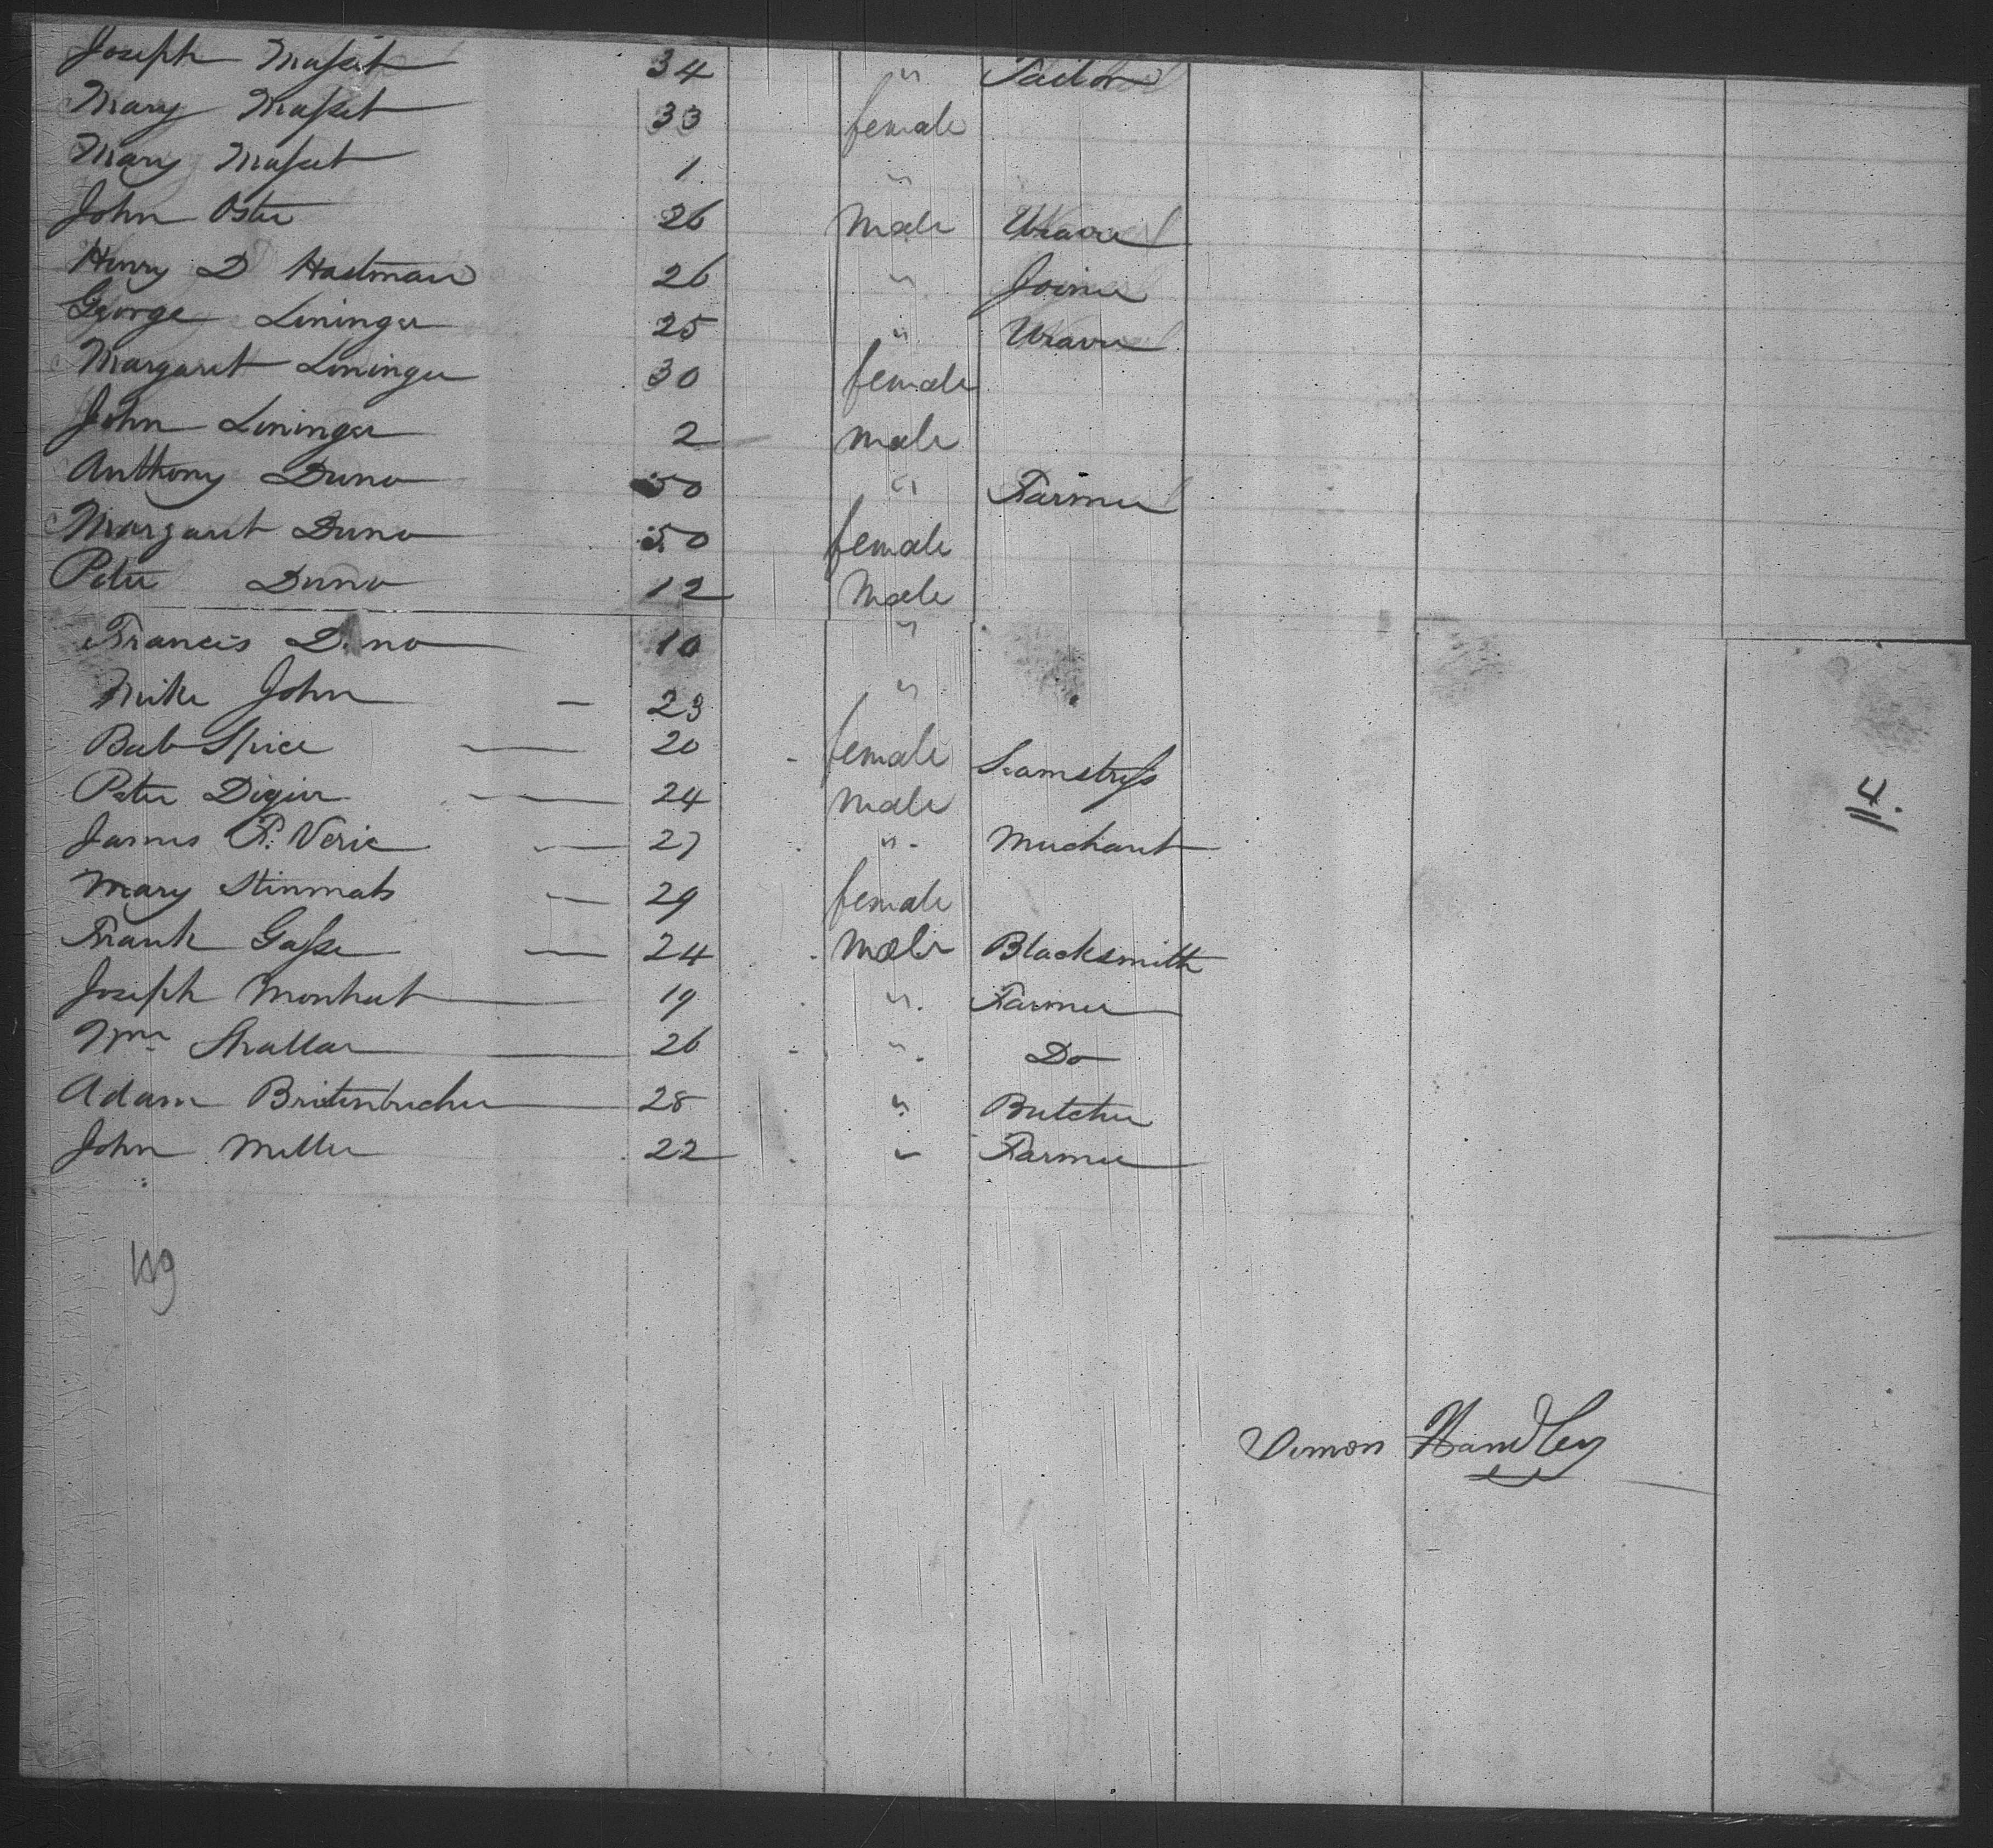 Joseph Masset 34 " Tailor
Mary Masset 33 female
Mary Masset 1 "
John Oster 26 Male Weaver
Henry D Hastman 26 " Joiner
George Lininger 25 " Weaver
Margaret Lininger 30 female
John Lininger 2 male
Anthony Duno 50 " Farmer
Margaret Duno 50 female
Peter Duno 12 Male
Francis Duno 10 "
Mike John 23 "
Bab Spice 20 female Seamstress
Peter 24 Male
James P. Veric 27 " Merchant
Mary Stinmats 29 female
Frank Gasse 24 Male Blacksmith
Joseph Monhut 19 " Farmer
Wm Shallar 26 " Do
Adam Britenbucher 28 " Butcher
John Miller 22 " Farmer
4.
119
Vernon Handley